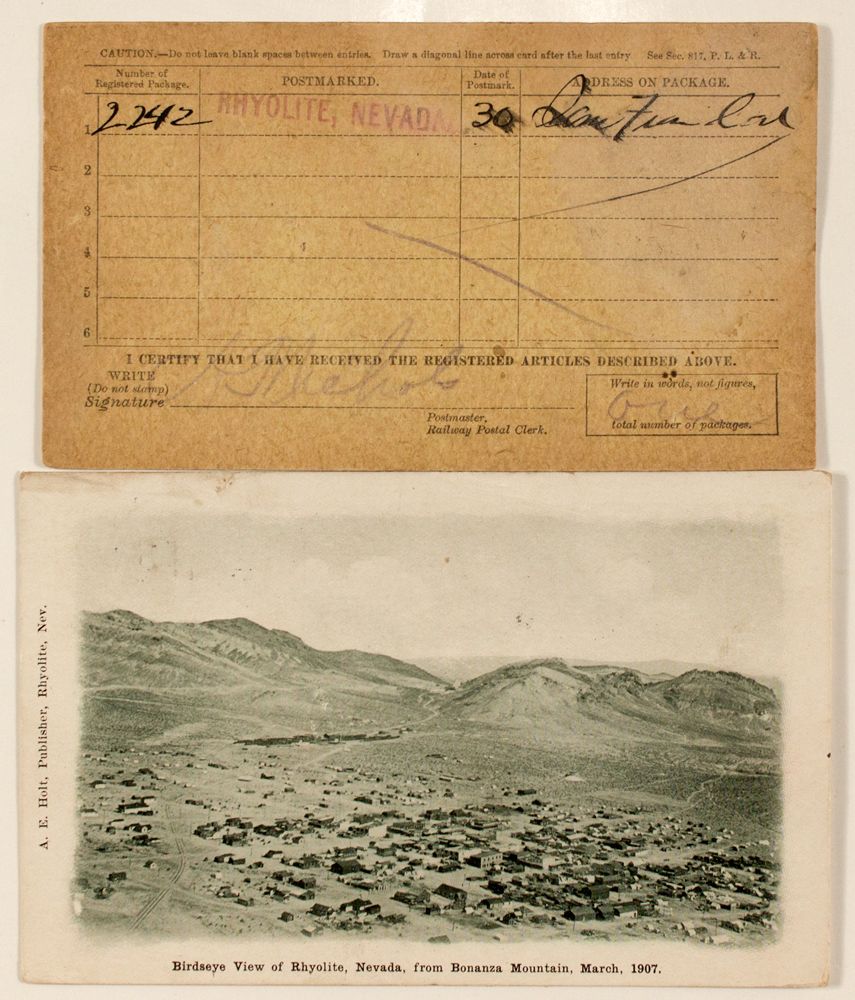 CAUTION.—Do not leave blank spaces between entries. Draw a diagonal line across card after the last entry See Sec. 817, P. L. & R.
Number of Registered Package.
POSTMARKED.
Date of Postmark.
ADDRESS ON PACKAGE.
1 2242 RHYOLITE, NEVADA. 30 San Fran
2
3
4
5
6
I CERTIFY THAT I HAVE RECEIVED THE REGISTERED ARTICLES DESCRIBED ABOVE.
WRITE
(Do not stamp)
Signature
Nichols
Postmaster,
Railway Postal Clerk.
Write in words, not figures,
one
total number of packages.
A. E. Holt, Publisher, Rhyolite, Nev.
Birdseye View of Rhyolite, Nevada, from Bonanza Mountain, March, 1907.